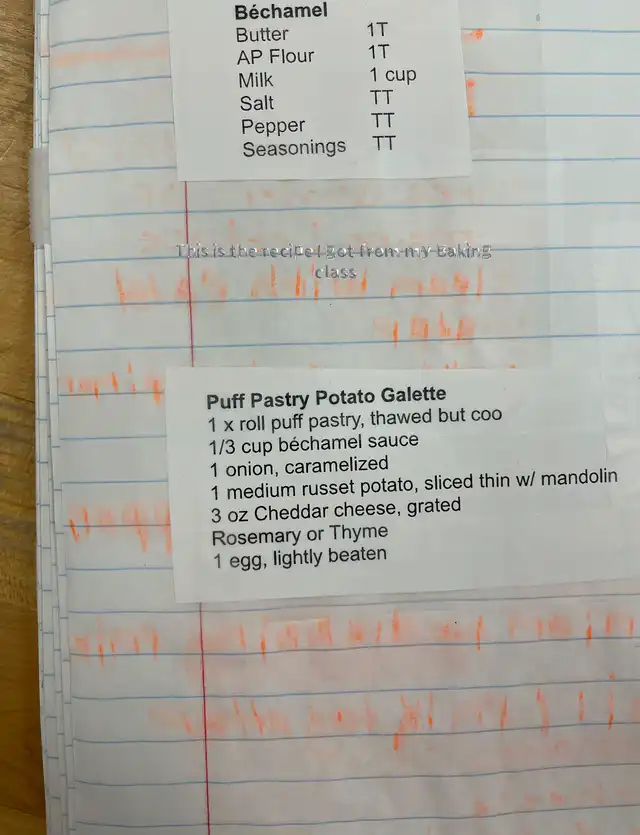 Béchamel
Butter 1T
AP Flour 1T
Milk 1 cup
Salt TT
Pepper TT
Seasonings TT
This is the recipe I got from my baking
class
Puff Pastry Potato Galette
1 x roll puff pastry, thawed but coo
1/3 cup béchamel sauce
1 onion, caramelized
1 medium russet potato, sliced thin w/ mandolin
3 oz Cheddar cheese, grated
Rosemary or Thyme
1 egg, lightly beaten